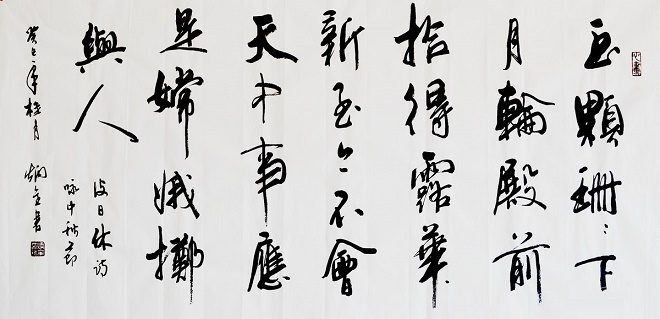 玉顆珊〻下
月輪殿前
拾得露華
新至今不會
天中事應
是嫦娥擲
與人
皮日休詩
詠中秋節
癸巳年桂月 書